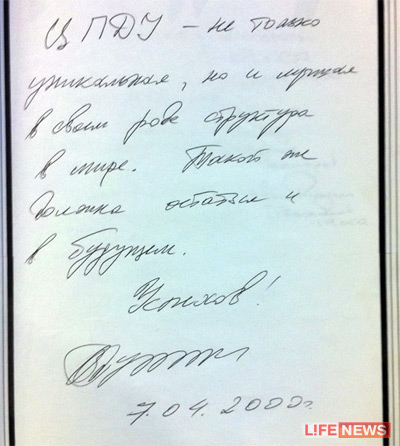 ЦПДУ – не только
уникальная, но и лучшая
в своем роде структура
в мире. Такой же
должна остаться и
в будущем.
Успехов!
7.04.2000г.
LIFENEWS